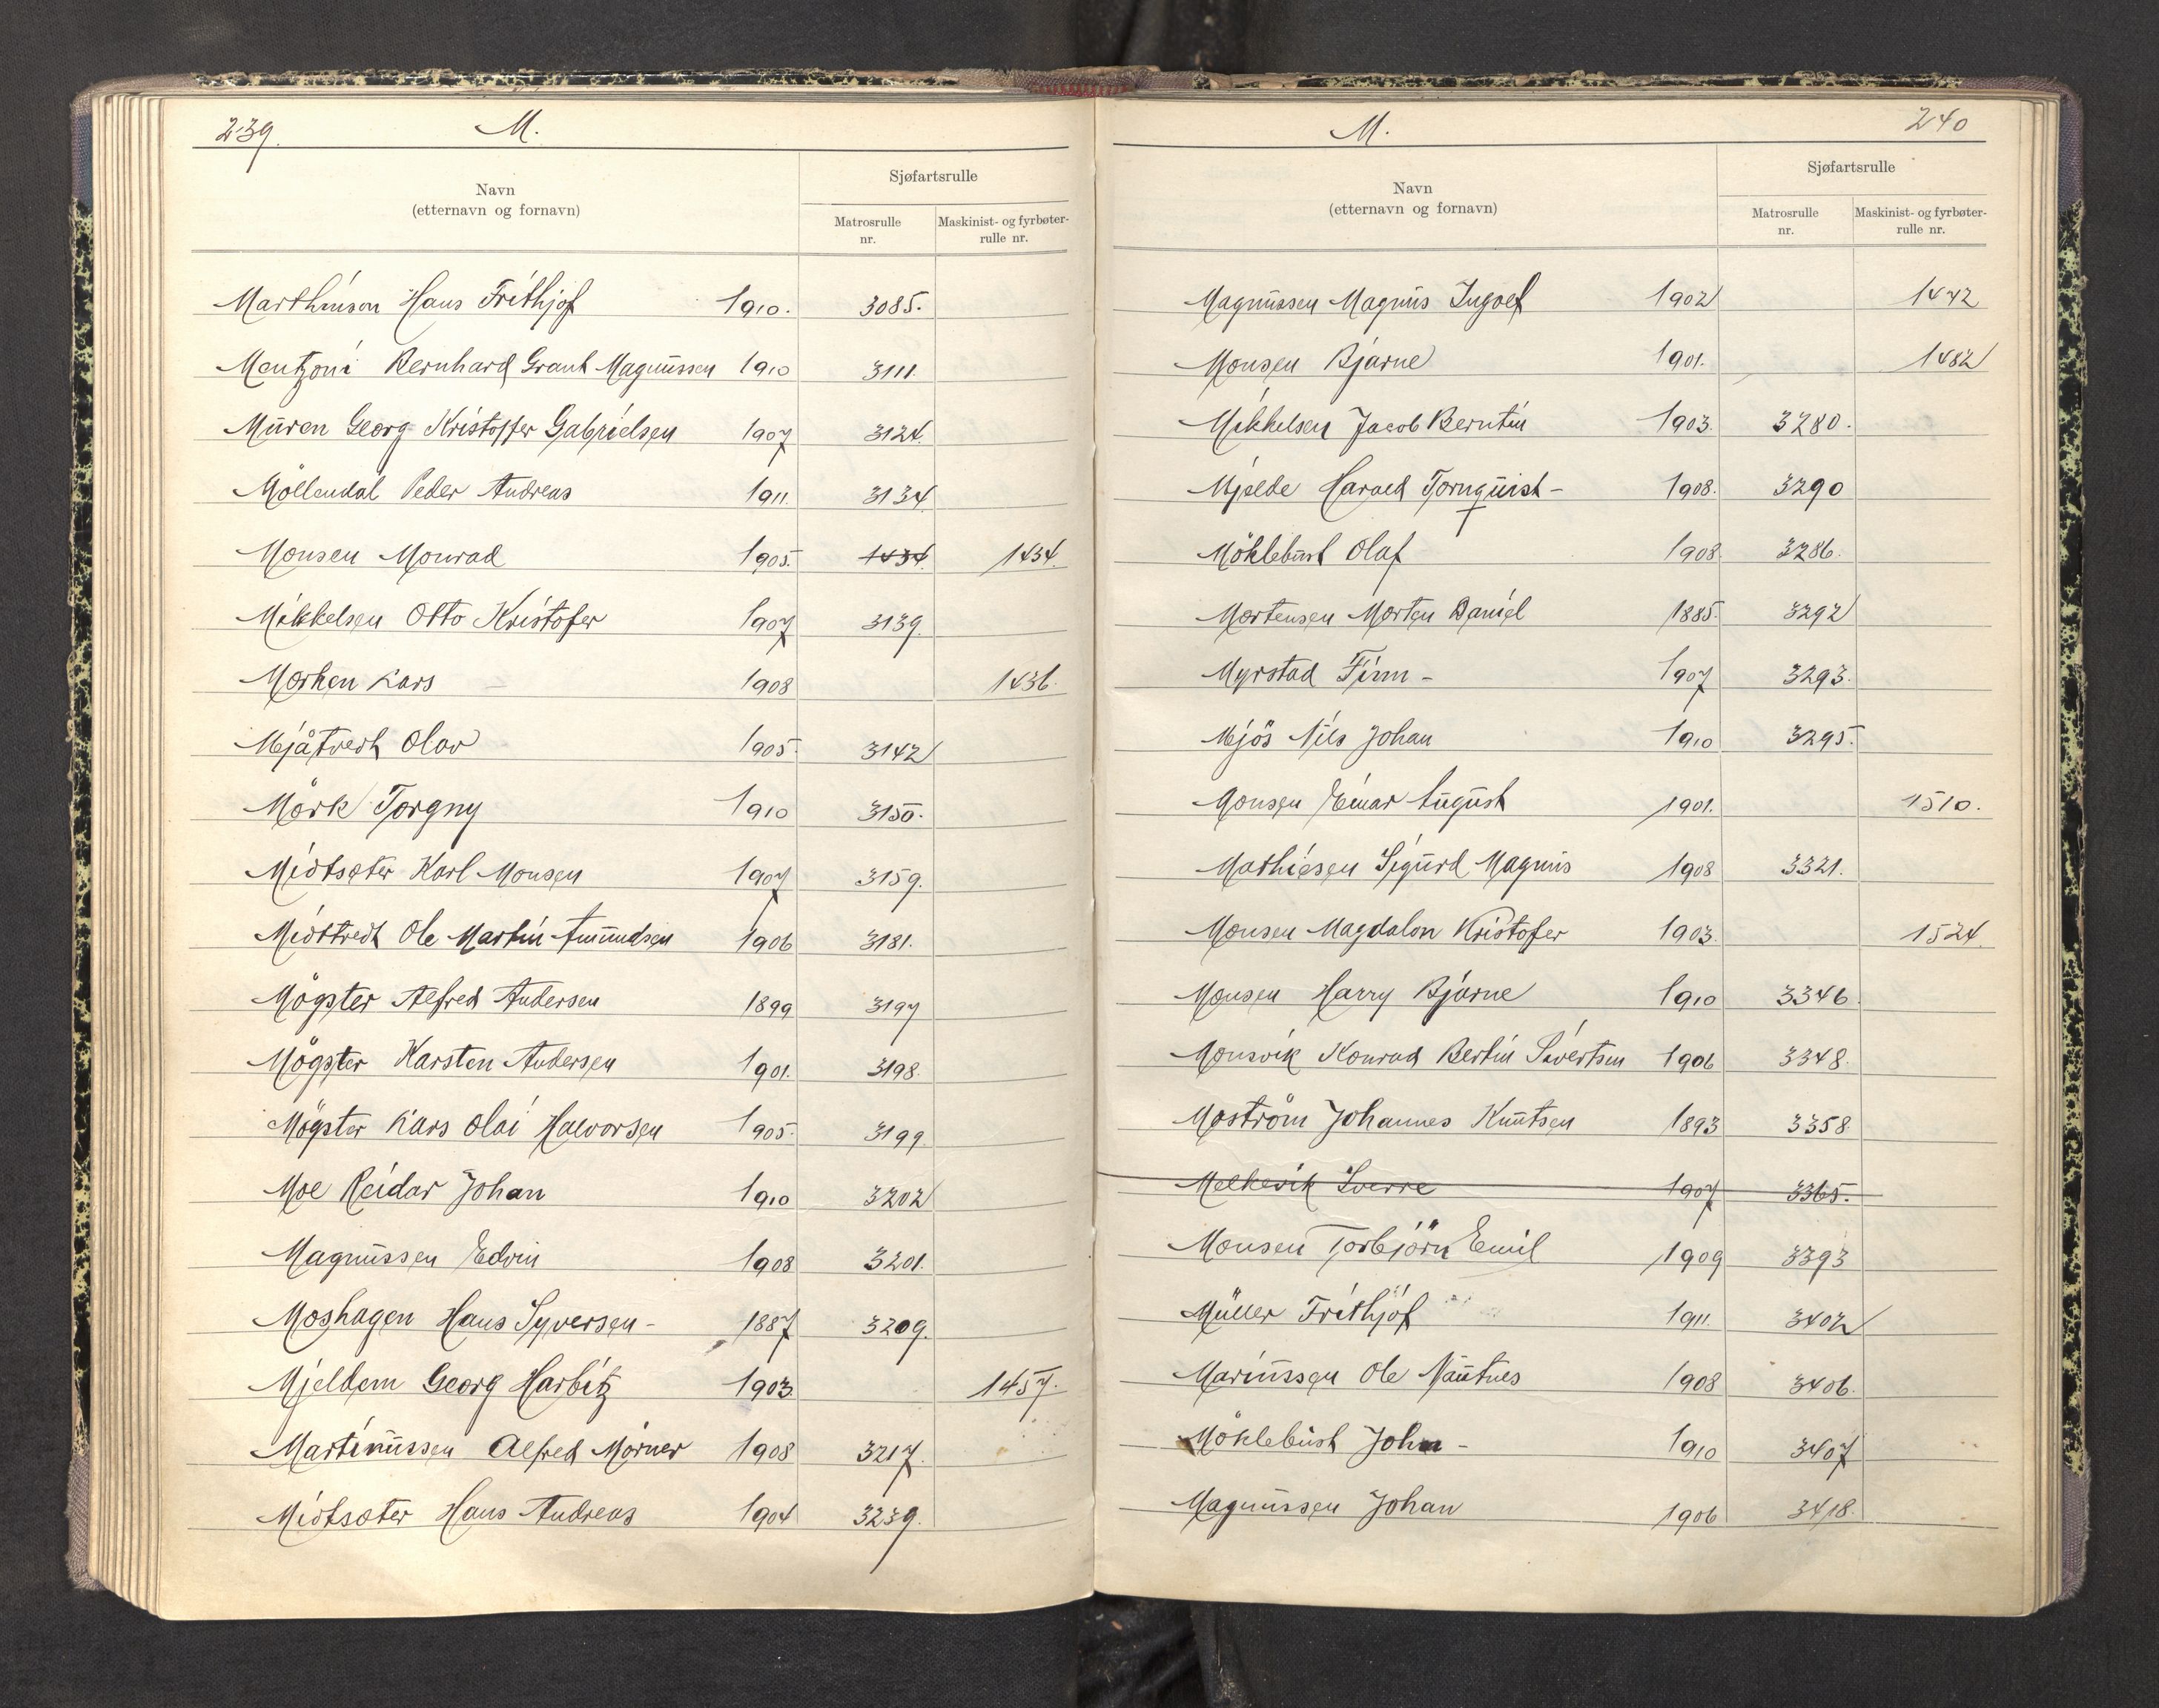 239. M.
Sjøfartsrulle
Navn
(etternavn og fornavn)
Matrosrulle nr. Maskinist- og fyrbøter-rulle nr.
Marthinson Hans Frithjof 1910. 3085.
Mentzoni Bernhard Grant Magnussen 1910 3111.
Muren Georg Kristoffer Gabrielsen 1907 3124.
Möllendal Peder Andreas 1911. 3134
Monsen Monrad 1905. 1434. 1434.
Mikkelsen Otto Kristofer 1907 3139.
Morken Lars 1908 1436.
Mjåtvedt Olav 1905. 3142
Mörk Torgny 1910 3150.
Midtsæter Karl Monsen 1907 3159.
Midttvedt Ole Martin Amundsen 1906 3181.
Mögster Alfred Andersen 1899 3197
Mögster Karsten Andersen 1901. 3198.
Mögster Lars Olai Halvorsen 1905. 3199.
Moe Reidar Johan 1910 3202
Magnussen Edvin 1908 3201.
Moshagen Hans Syversen - 1887 3209.
Mjeldem Georg Harbitz 1903 1457.
Martinussen Alfred Mörner 1908 3217.
Midtsæter Hans Andreas 1904 3239.
M. 240
Sjøfartsrulle
Navn
(etternavn og fornavn)
Matrosrulle nr. Maskinist- og fyrbøter-rulle nr.
Magnussen Magnus Ingolf 1902 1442
Monsen Bjarne 1901. 1482
Mikkelsen Jacob Berntin 1903. 3280.
Mjelde Harald Tornquist - 1908. 3290
Möklebust Olaf 1908. 3286.
Mortensen Morten Daniel 1885. 3292
Myrstad Finn - 1907 3293.
Mjös Nils Johan 1910 3295.
Monsen Einar August 1901. 1510.
Mathiesen Sigurd Magnus 1908 3321.
Monsen Magdalon Kristofer 1903. 1524.
Monsen Harry Bjarne 1910 3346.
Monsvik Konrad Bertin Sivertsen 1906 3348.
Moström Johannes Knutsen 1893 3358.
Melkevik Sverre 1907 3365.
Monsen Torbjörn Emil 1909 3393
Müller Frithjof 1911. 3402
Marinussen Ole Nautnes 1908 3406.
Möklebust John - 1910 3407
Magnussen Johan 1906 3418.